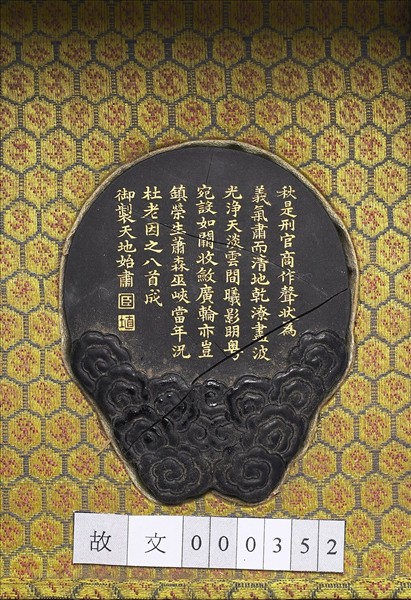 秋是刑官商作聲狀為
義氣肅而清地乾潦盡波
光淨天淡雲間曦影明粵
宛設如關收斂廣輪亦豈
鎮榮生蕭森巫峽當年況
杜老因之八首成
御製天地始肅 臣
故文000352